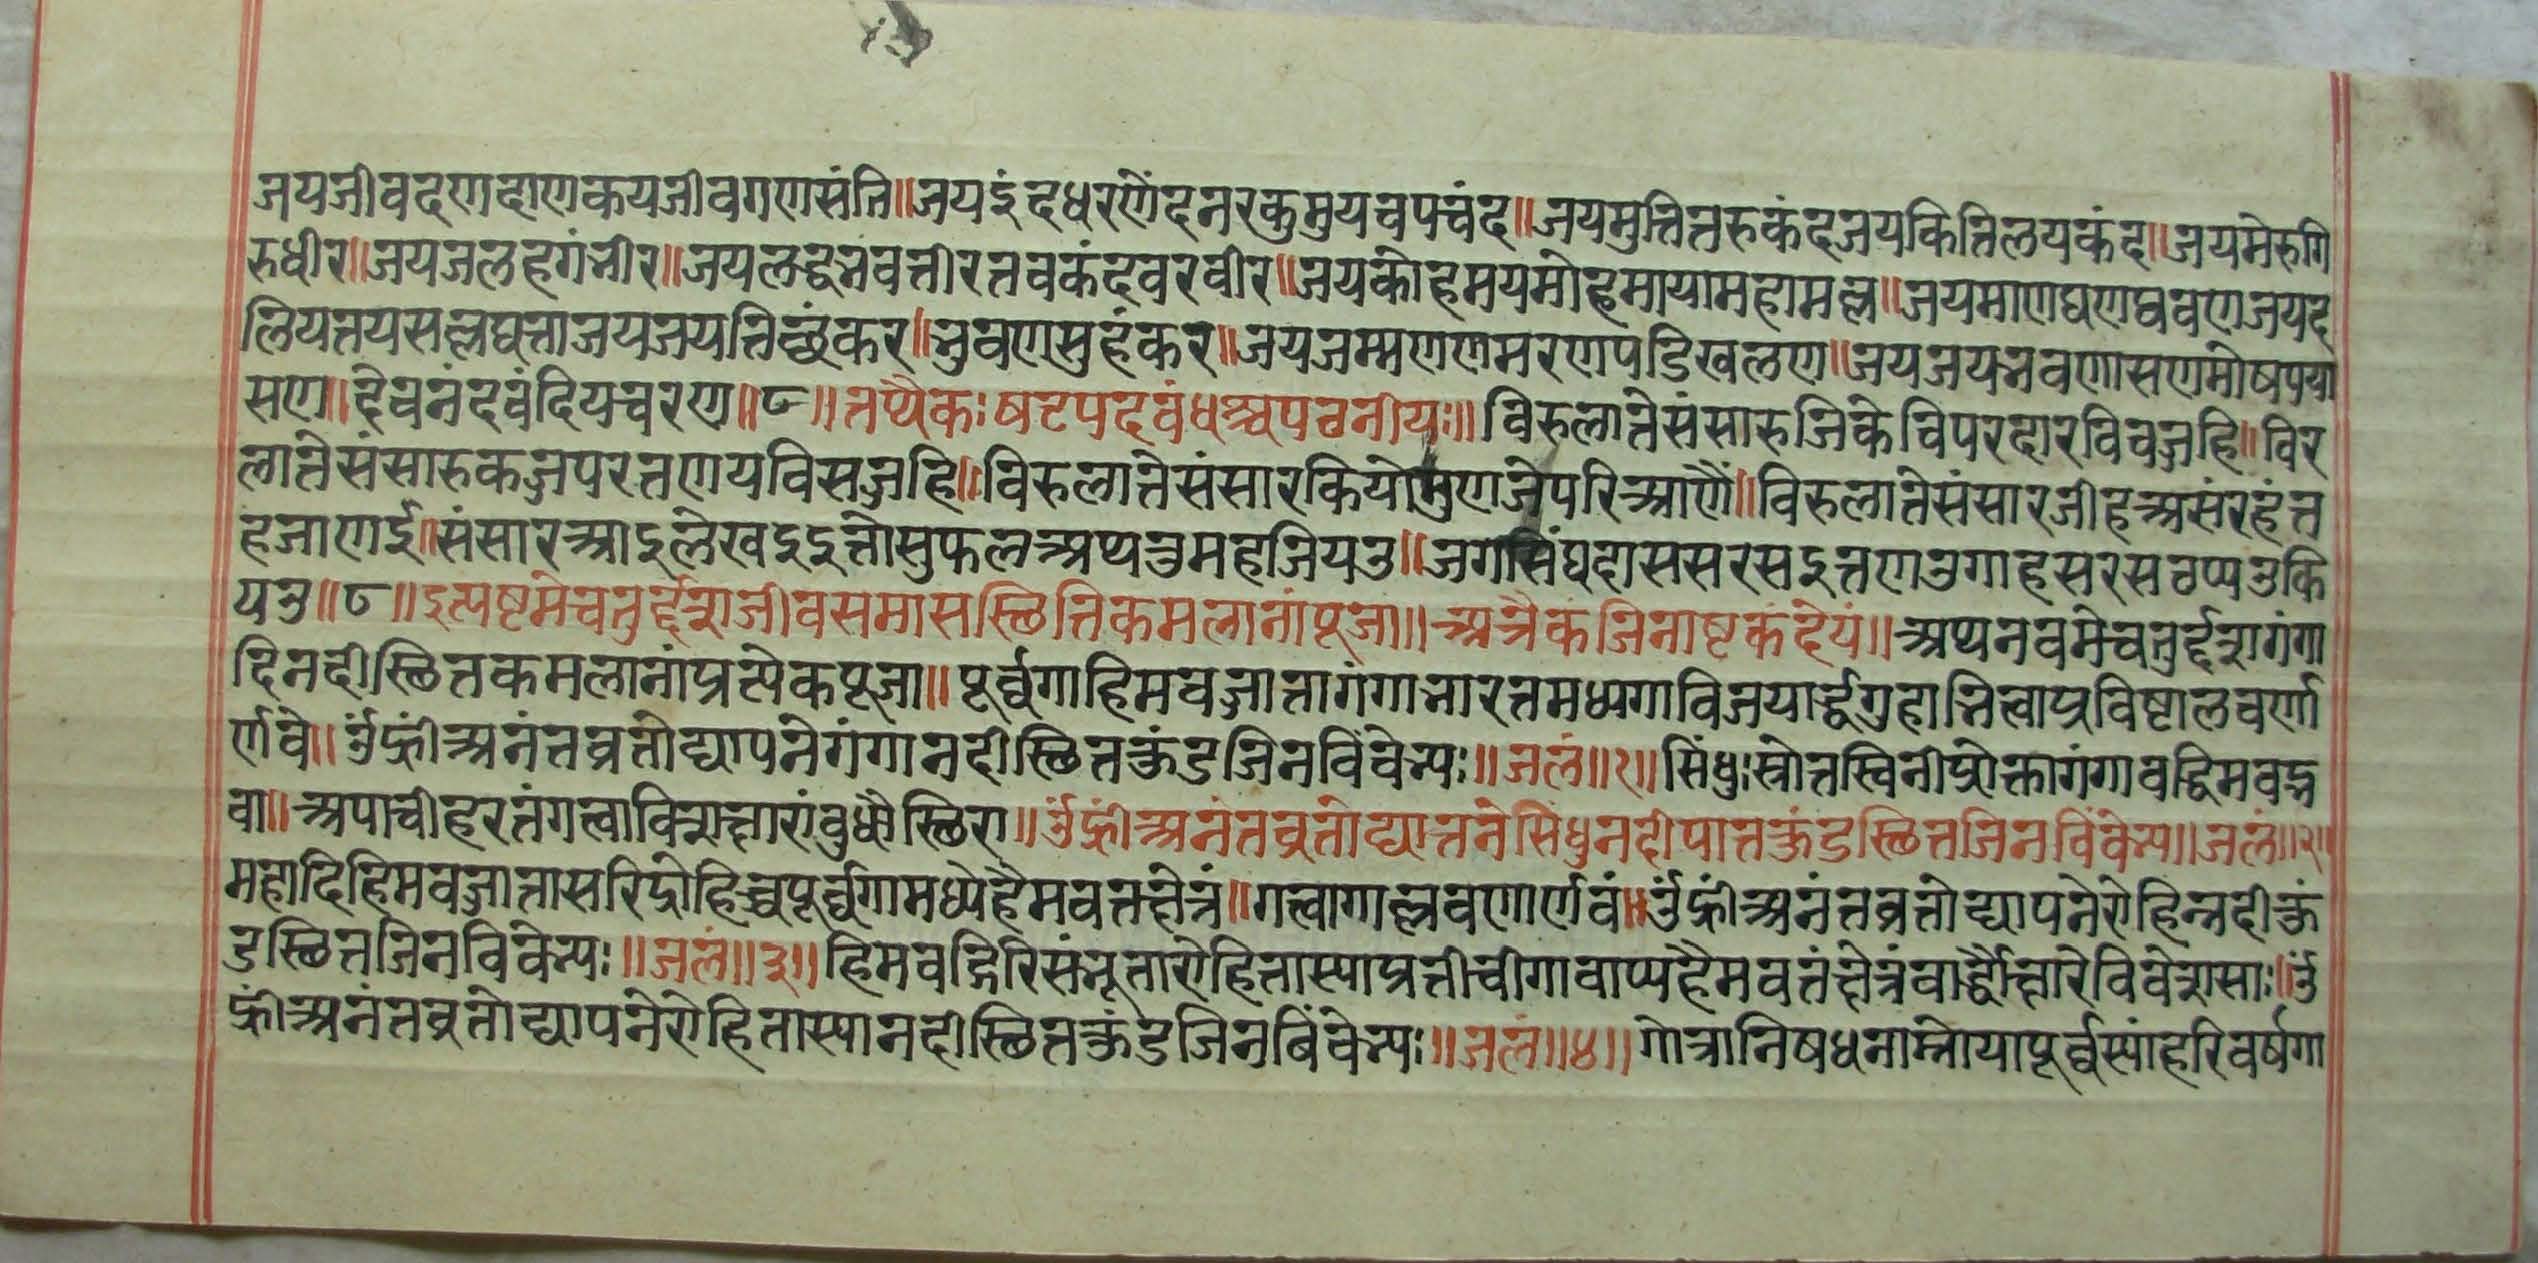 जयजीवदणदाणकयजीवगणसंति॥जयइंदधरणेंदनरकुमुयचपचंद॥जयमुत्तितरुकंदजयकित्तिलयकंद॥जयमेरुगि
रुधीर॥जयजलहगंभीर॥जयलद्धभवतीरतवकंदवरवीर॥जयकोहमयमोहमायामहामल्ल॥जयमाणघणघवणजयद
लियतयसल्लघत्ताजयजयतित्थंकर॥भुवणसुहंकर॥जयजम्मणणमरणपडिखलण॥जयजयभवणासणमोषपया
सण॥देवनंदवंदियचरण॥८॥तथैकःषटपदवंधश्चपचनीयः॥विरुलातेसंसारुजिकेविपरदारविवज्जहि॥विर
लातेसंसारुकज्जुपरतणयविसज्जहि॥विरुलातेसंसारकियोगुणजेपरिआणैं॥विरुलातेसंसारजीहअसंरहंत
हजाणई॥संसारआइलेखइइत्तोसुफलअप्पउमहजियउ॥जगसिंघदाससरसइतणउगाहसरसठप्पउकि
यउ॥८॥इत्यष्टमेचतुर्द्दशजीवसमासस्थितिकमलानांपूजा॥अत्रैकंजिनाष्टकंदेयं॥अथनवमेचतुर्द्दशगंगा
दिनदीस्थितकमलानांप्रत्येकपूजा॥पूर्व्वगाहिमवज्जातागंगाभारतमध्यगाविजयार्द्धेगुहाभित्वाप्रविष्टालवर्णा
र्णवे॥ॐह्रींअनंतव्रतोद्यापनेगंगानदीस्थितकुंडजिनविंवेभ्यः॥जलं॥१॥सिंधुःस्रोतस्विनीप्रोक्तागंगावद्धिमवद्भ
वा॥अपाचीहरतंगत्वाविशत्क्षारांवुधौस्थिरा॥ॐह्रींअनंतव्रतोद्यातनेसिंधुनदीपातकुंडस्थितजिनविंवेभ्य॥जलं॥२॥
महादिहिमवज्जातासरिद्रोहिच्चपूर्व्वगामध्येहैमवतक्षेत्रं॥गत्वागाल्लवणार्णवं॥ॐह्रींअनंतव्रतोद्यापनेरोहिन्नदीकुं
डस्थितजिनविवेभ्यः॥जलं॥३॥हिमवद्गिरिसंभूतारोहितास्याप्रतीचीगावाप्यहैमवतंक्षेत्रंवार्द्धौक्षारेविवेशसाः॥ॐ
ह्रींअनंतव्रतोद्यापनेरोहितास्यानदीस्थितकुंडजिनबिंवेभ्यः॥जलं॥४॥गोत्रानिषधनाम्नोयापूर्व्वस्यांहरिवर्षगा